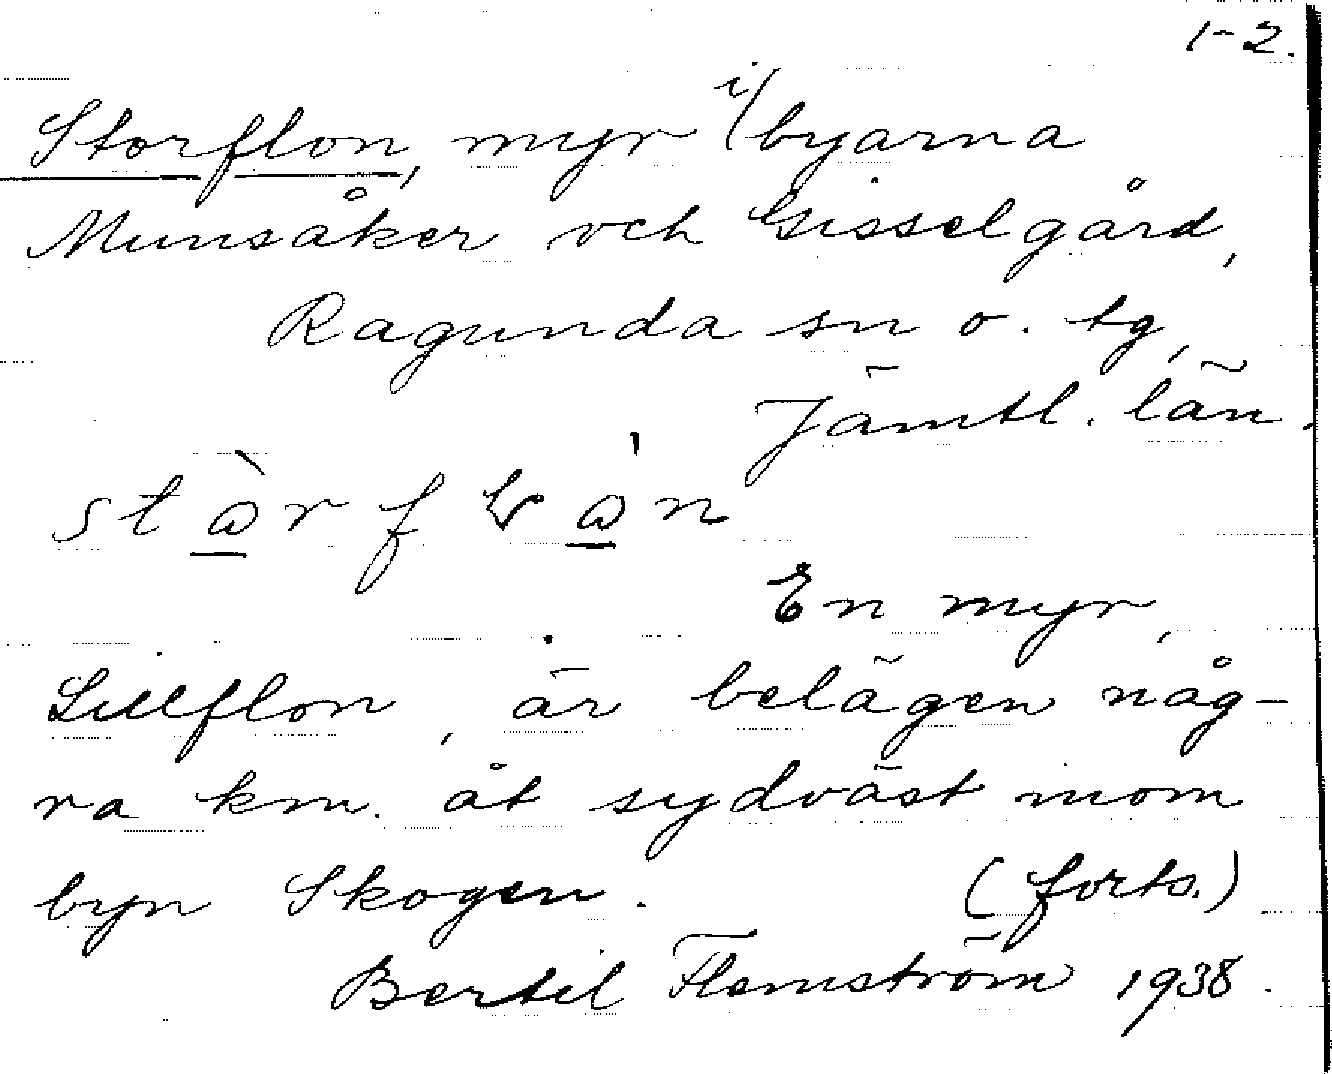 1-2.
Storflon, myr i byarna
Munsåker och Gisselgård,
Ragunda sn o. tg,
Jämtl. län.
En myr,
Lillflon, är belägen någ-
ra km. åt sydväst inom
byn Skogen. (forts.)
Bertil Flemström 1938.